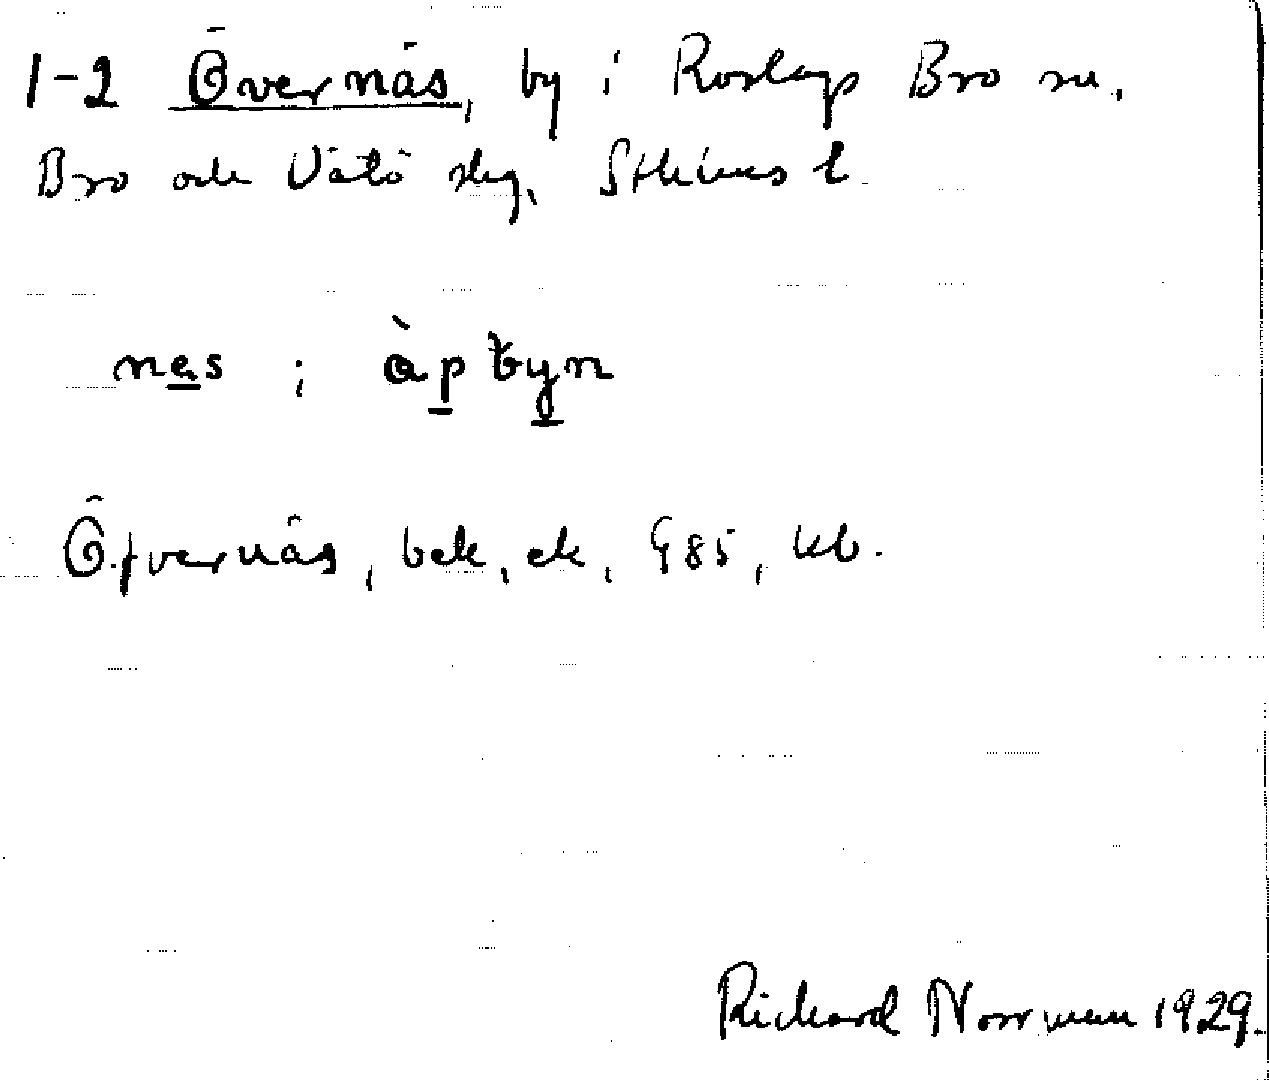 1-2 Övernäs, by i Roslags Bro sn,
Bro och Vätö skg, Sthlms l.
nes ; öptyn
Öfvernäs, bek, ek, 985, kb.
Richard Norrman 1929.